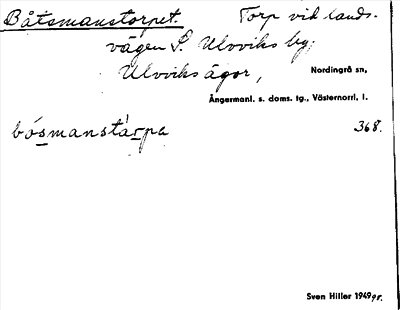 Båtsmanstorpet. Torp vid lands-
vägen S. Ulvviks by;
Ulvviks ägor, Nordingrå sn,
Ångermanl. s. doms. tg., Västernorrl. l.
bósmanstàrpa 368.
Sven Hiller 1949